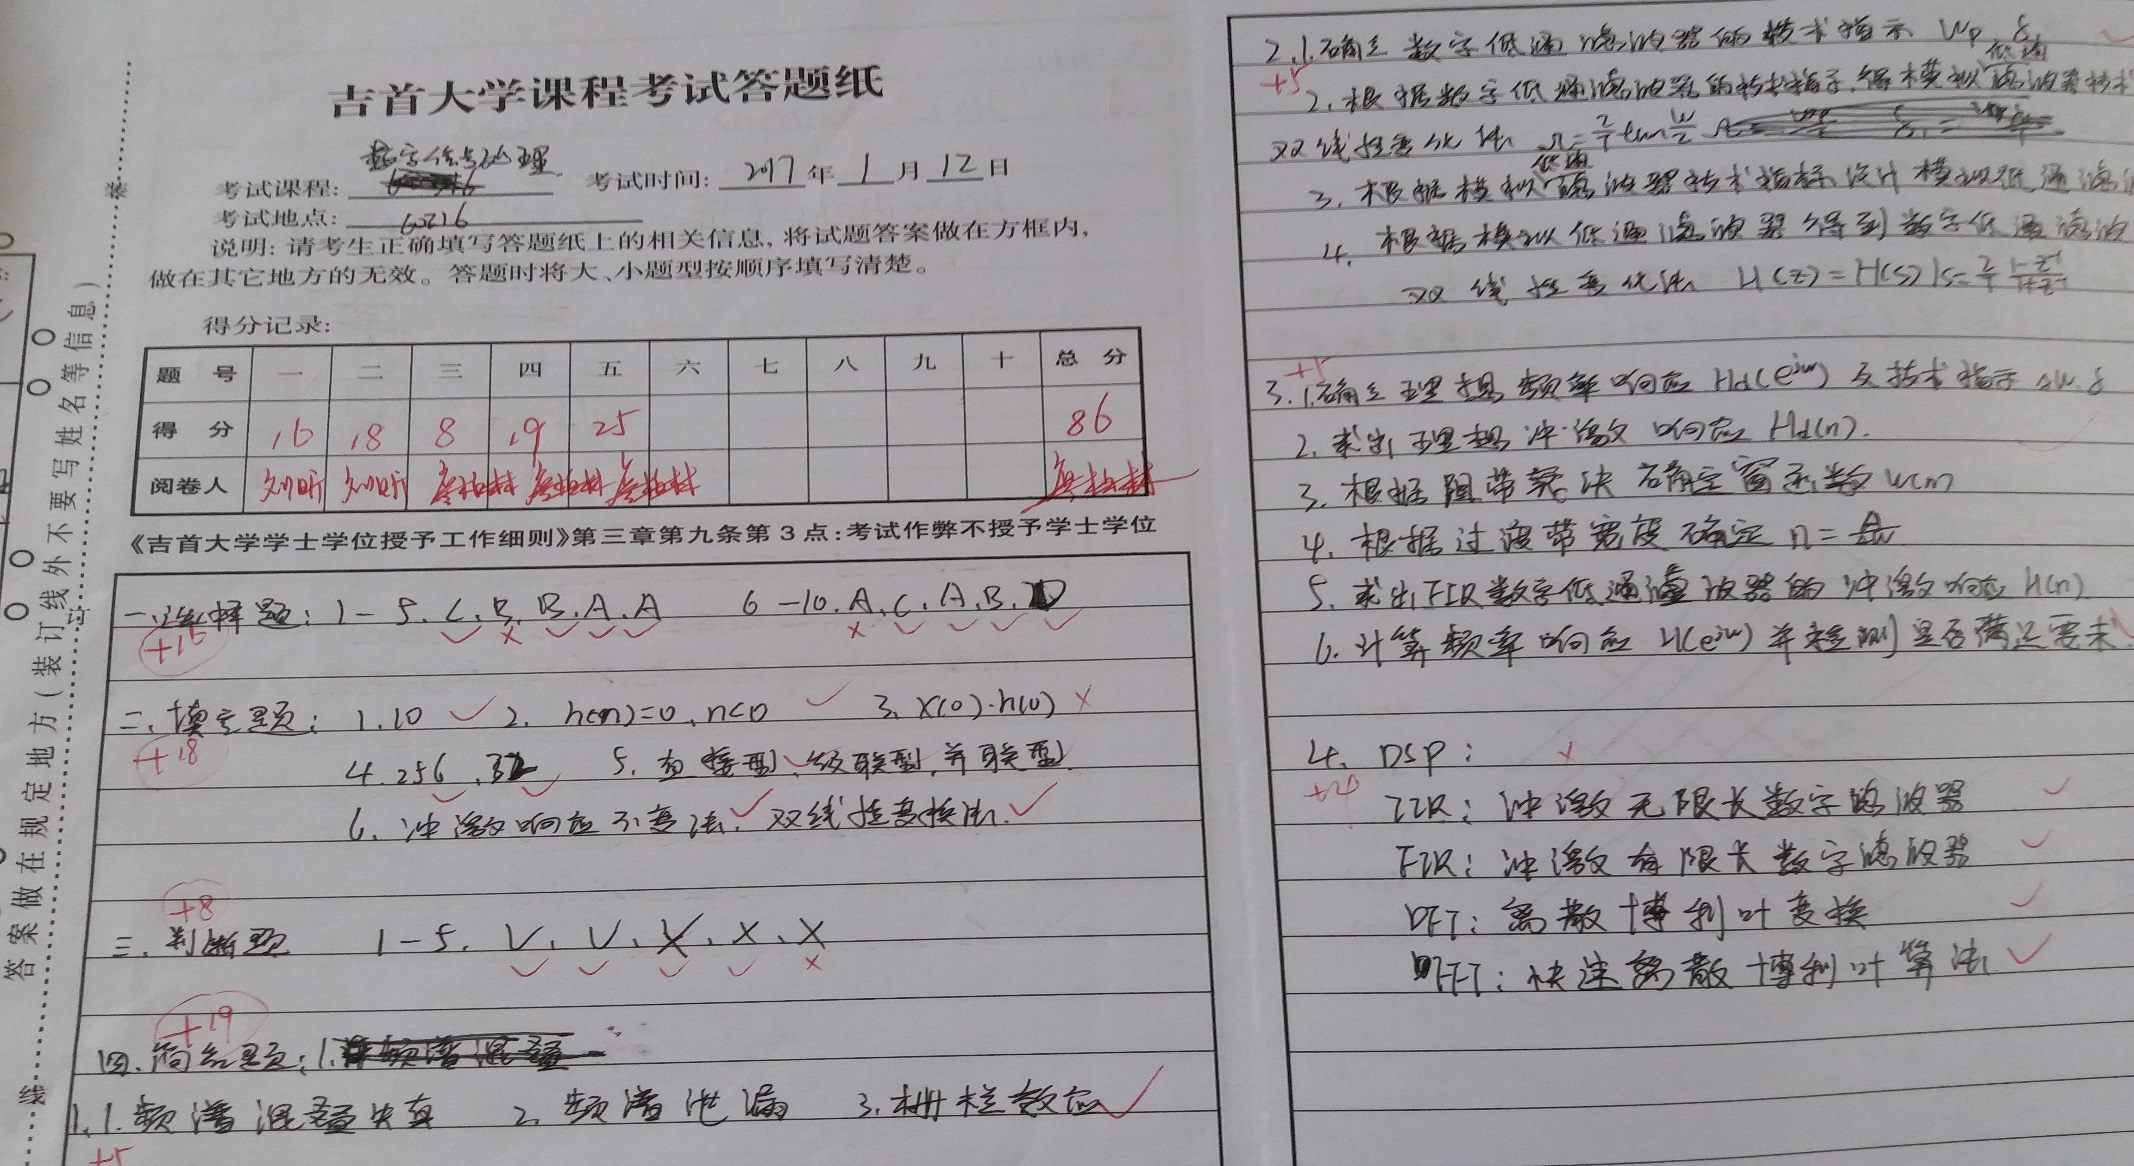 吉首大学课程考试答题纸
数字信号处理
考试课程: 考试时间: 2017年1月12日
考试地点: 60216
说明: 请考生正确填写答题纸上的相关信息, 将试题答案做在方框内,
做在其它地方的无效。答题时将大、小题型按顺序填写清楚。
得分记录:
题 号 一 二 三 四 五 六 七 八 九 十 总 分
得 分 16 18 8 19 25 86
阅卷人 刘昕 刘昕
《吉首大学学士学位授予工作细则》第三章第九条第3点: 考试作弊不授予学士学位
一.选择题: 1-5. C. B. B. A. A 6-10. A. C. A. B. D
+16
二. 填空题: 1. 10 2. h(n)=0, n<0 3. x(0)·h(0) ×
+18
4. 256 . 32 5. 直接型、级联型. 并联型
6. 冲激响应不变法. 双线性变换法.
+8
三. 判断题 1-5. √. √. X. X. X
+19
四. 简答题: 1. 频谱混叠
1. 1. 频谱混叠失真 2. 频谱泄漏 3. 栅栏效应
+5
答案做在规定地方(装订线外不要写姓名等信息)
装
订
线
2. 1. 确立数字低通滤波器的技术指示 Wp δ
+5
低通
2. 根据数字低通滤波器的技术指示. 得模拟滤波器技术
双线性变化法 Ω=2/T tan W/2
低通
3. 根据模拟滤波器技术指标设计模拟低通滤
4. 根据模拟低通滤波器得到数字低通滤波
双线性变化法 H(z)=H(s)|s=2/T 1-z⁻¹/1+z⁻¹
+5
3. 1. 确立理想频率响应 Hd(e^jw) 及技术指示 ΔW. δ
2. 求出理想冲激响应 Hd(n).
3. 根据阻带衰决确定窗函数 W(n)
4. 根据过渡带宽度确定 n = A/Δw
5. 求出FIR数字低通滤波器的冲激响应 h(n)
6. 计算频率响应 H(e^jw) 并检测是否满足要求
4. DSP: ×
+4
IIR: 冲激无限长数字滤波器
FIR: 冲激有限长数字滤波器
DFT: 离散博利叶变换
FFT: 快速离散博利叶算法